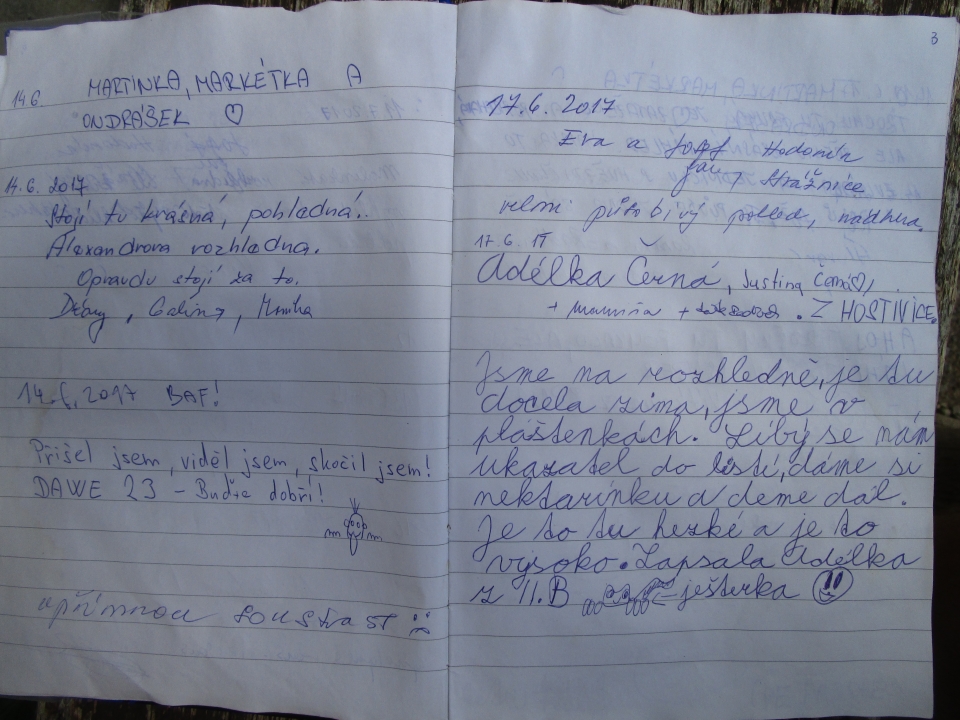 14.6. MARTINKA, MARKÉTKA A
ONDRÁŠEK ♡
14.6. 2017
Stojí tu krásná, pohledná..
Alexandrova rozhledna.
Opravdu stojí za to.
14.6.2017 BAF!
Přišel jsem, viděl jsem, skočil jsem!
DAWE 23 – Buďte dobří!
upřímnou soustrast
3
17.6. 2017
Eva a Josef Hodonín
Strážnice
velmi působivý pohled, nádhera.
17.6. 17
Adélka Černá, Justina Černá♡,
+ mamina + . Z HOSTIVICE.
Jsme na rozhledně, je tu
docela zima, jsme v
pláštenkách. Líbý se nám
ukazatel do listí, dáme si
nektarinku a deme dál.
Je to tu hezké a je to
výsoko. Zapsala Adélka
z II.B ještěrka